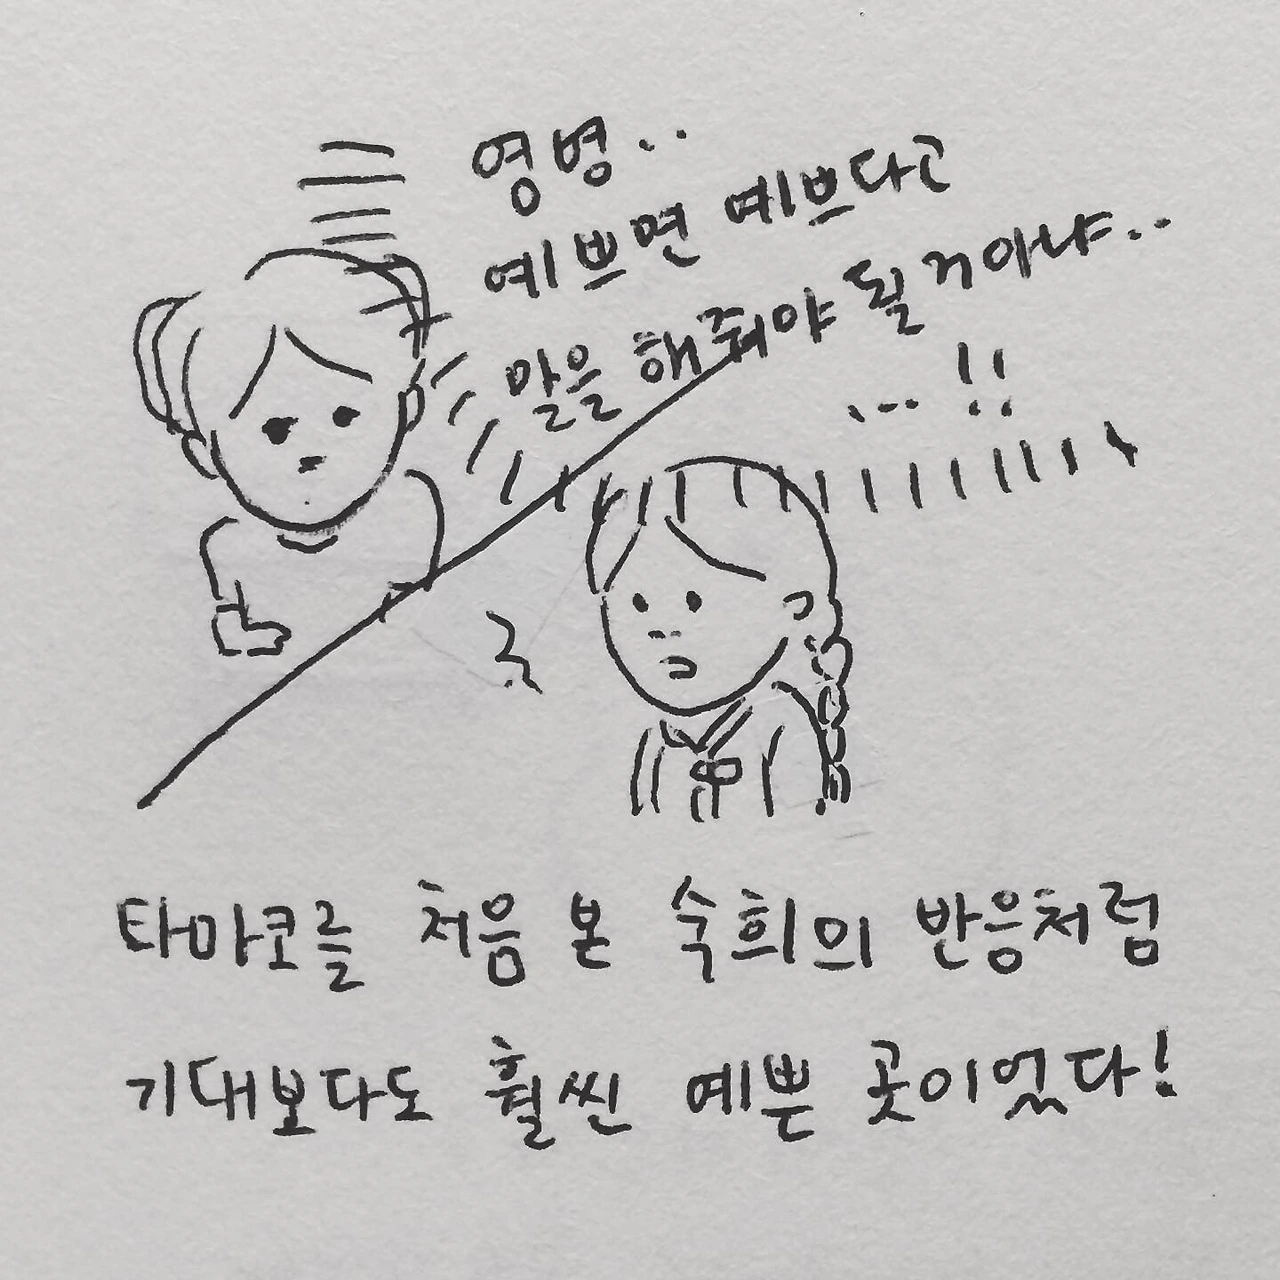 영병..
예쁘면 예쁘다고
말을 해줘야 될 거 아냐..
...!!
타마코를 처음 본 숙희의 반응처럼
기대보다도 훨씬 예쁜 곳이었다!